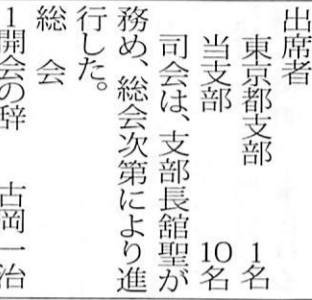 出席者
東京都支部　1名
当支部　10名
司会は、支部長舘聖が
務め、総会次第により進
行した。
総　会
1開会の辞　古岡一治